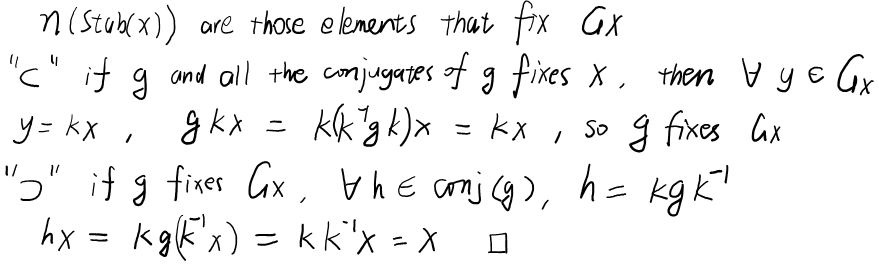 η(Stab(x)) are those elements that fix Gx
"⊂" if g and all the conjugates of g fixes x, then ∀ y ∈ Gx
y = kx, gkx = k(k⁻¹gk)x = kx, so g fixes Gx
"⊃" if g fixes Gx, ∀ h ∈ conj(g), h = kgk⁻¹
hx = kg(k⁻¹x) = kk⁻¹x = x □